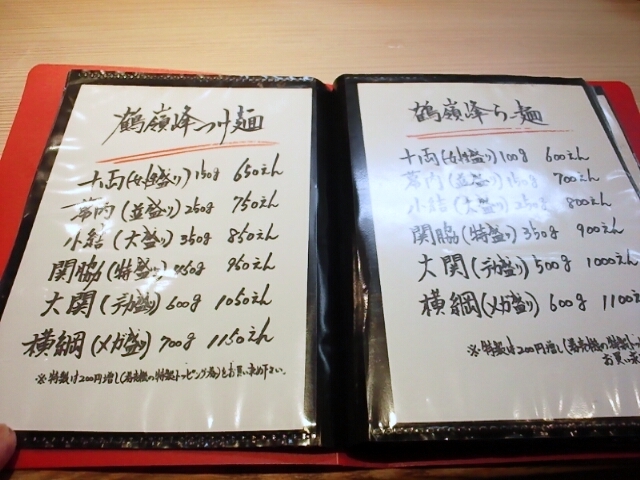 鶴嶺峰つけ麺
十両(女性盛り)150g 650えん
幕内(並盛り)250g 750えん
小結(大盛り)350g 850えん
関脇(特盛り)450g 950えん
大関(デカ盛り)600g 1050えん
横綱(メガ盛り)700g 1150えん
※特製は200円増し(券売機の特製トッピング券)をお買い求め下さい。
鶴嶺峰らー麺
十両(女性盛り)100g 600えん
幕内(並盛り)150g 700えん
小結(大盛り)250g 800えん
関脇(特盛り)350g 900えん
大関(デカ盛り)500g 1000えん
横綱(メガ盛り)600g 1100え
※特製は200円増し(券売機の特製ト
お買い求